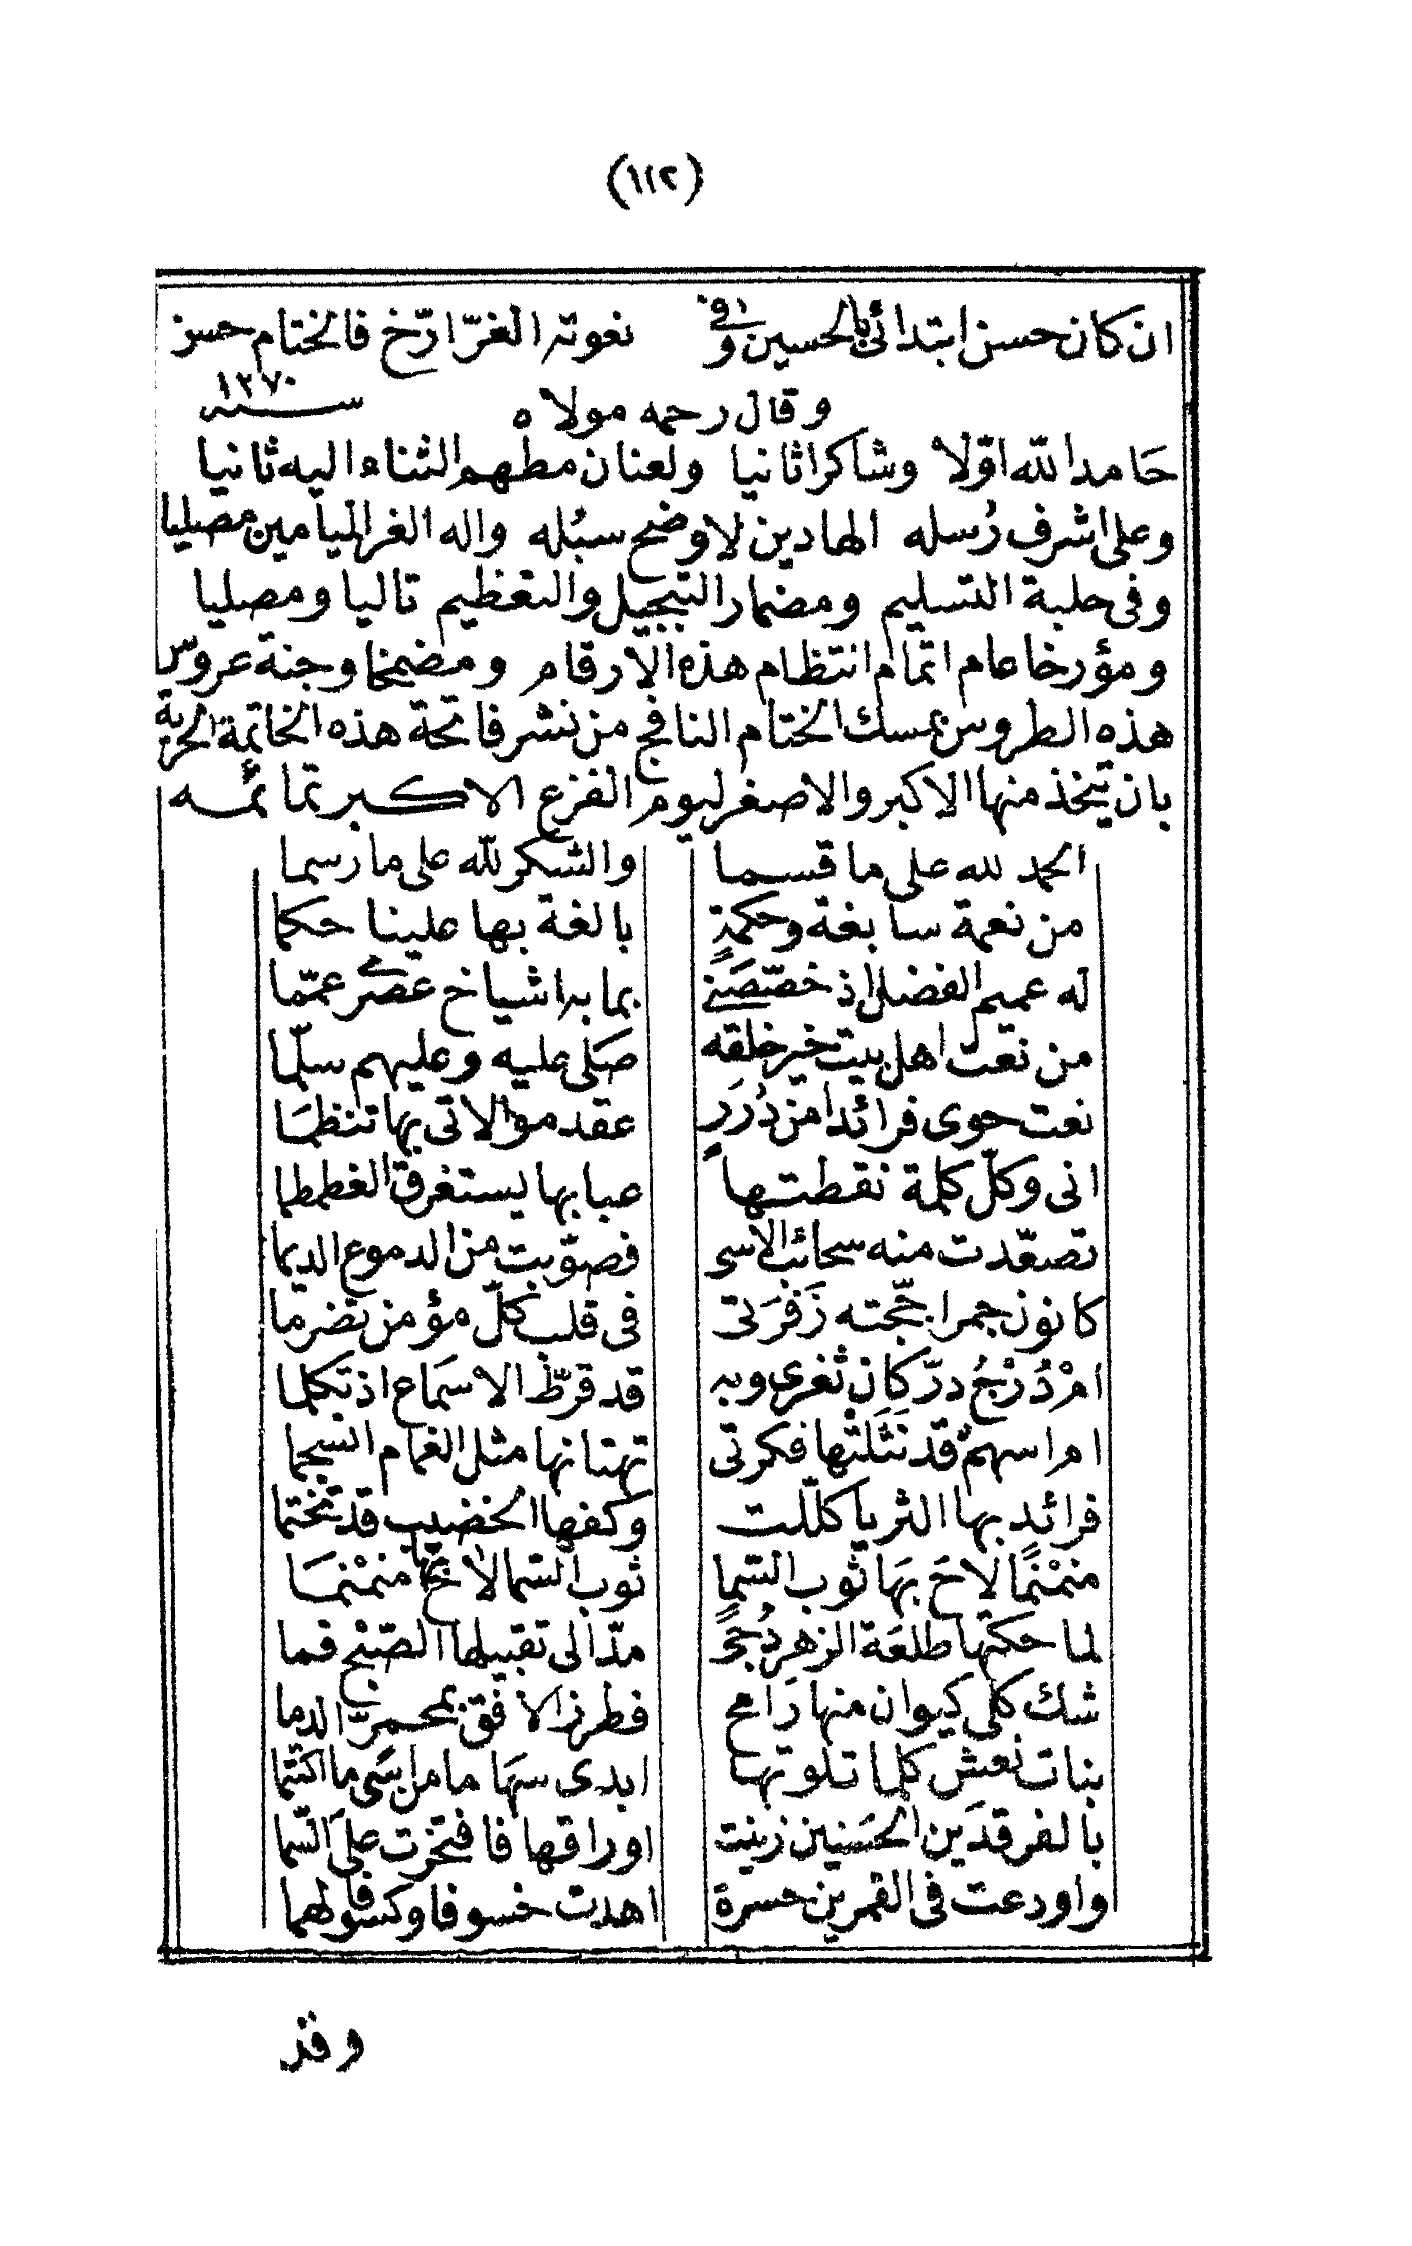 (١١٢)
ان كان حسن ابتدائى بالحسين وفى نعوته الغرّ ارّخ فالختام حسن
وقال رحمه مولاه سنه ١٢٧٠
حَامدا لله اوّلا وشاكرا ثانيا ولعنان مطهم الثناء اليه ثانيا
وعلى اشرف رُسله الهادين لاوضح سبُله واله الغر الميامين مصليا
وفى حلبة التسليم ومضمار التبجيل والتعظيم تاليا ومصليا
ومؤرخا عام اتمام انتظام هذه الارقام ومضمخا وجنة عروس
هذه الطروس بمسك الختام النافج من نشر فاتحة هذه الخاتمة الحرية
بان يتخذ منها الاكبر والاصغر ليوم الفزع الاكبر تمائمه
الحمد لله على ما قسما والشكر لله على ما رسما
من نعمة سابغة وحكمةٍ بالغة بها علينا حكما
له عميم الفضل اذ خصّصَنى بما به اشياخ عصرى عمّما
من نعت اهل بيت خير خلقه صَلى عليه وعليهم سلّما
نعت حوى فرائدا من دُرَرٍ عقد موالاتى بها تنظمَا
انى وكلّ كلمة نقطتها عبابها يستغرق الغطمطما
تصعّدت منه سحائب الاسى فصوّبت من الدموع الديما
كانون جمر اجّجته زَفرَتى فى قلب كلّ مؤمن تضرما
امْ دُرْجُ درّ كان ثغرى وبه قد قرطّ الاسمَاع اذ تكلما
ام اسهمٌ قد نَثَلَتْها فكرتى تهتانها مثل الغمام انسجما
فرائد بها الثريا كللّت وكفها الخضيب قد تختما
منمْنمًا لاحَ بهَا ثوب السّما ثوب السّما لاح بها منمْنمَا
لما حكتها طلعَة الزهر دُجىً مدّ الى تقبيلها الصّبْح فما
شك كلى كيوان منها رَامح فطرز الافق بمحمرّ الدما
بنات نعش كلما تلوتها ابدى سهَا ما من اسًى ما اكتتما
بالفرقدَين الحَسَنين زينت اوراقها فافتخرت علىَ السّما
واودعت فى القمرين حسرة اهدت خسوفا وكسوفا لهما
وقد